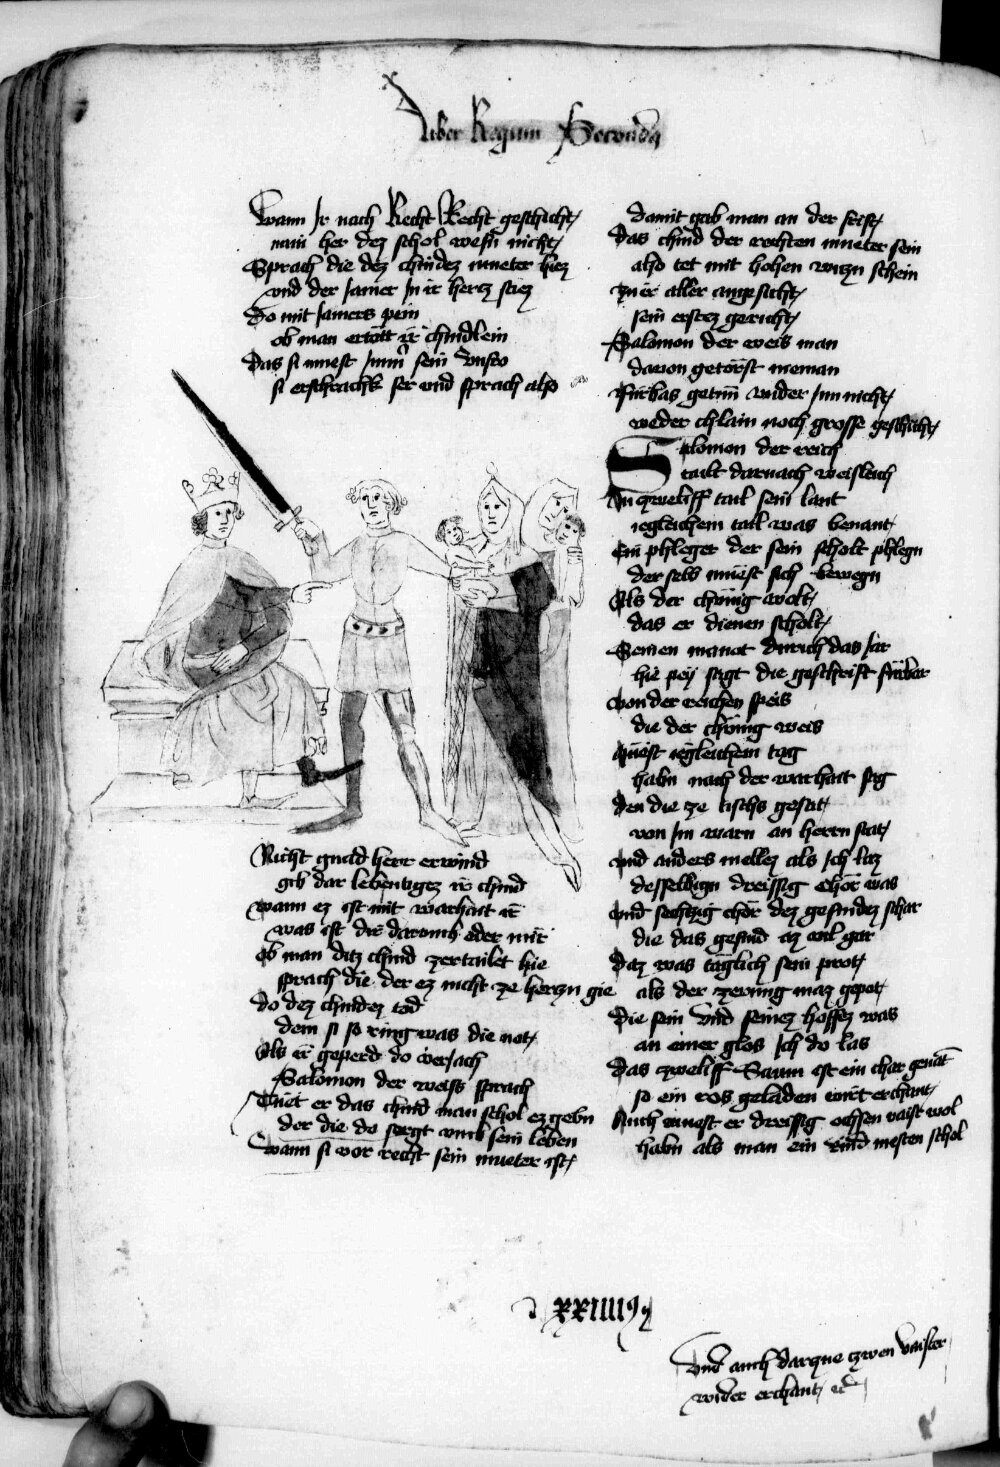 Liber Regum Secundus
Wann Ir nach Recht Recht geschicht
nain her dez schol wesn nicht
Sprach die dez chindez mueter hiez
vnd der Jamer In ir hertz stiez
Do mit Jamers pein
ob man ertött ir chindlein
Das si muest Imer sein vnfro
si erschrachk ser vnd sprach also
Nicht gnad herr erwind
gib dar lebentigez ir chind
wann ez ist mit warhait ir
was ist dir darumb oder mir
ob man ditz chind zertailet hie
sprach die der ez nicht ze hertzn gie
do dez chindez tod
dem si so ring was die not
Als ir geperd do veriach
Salomon der weiss sprach
Tuet er das chind man schol ez gebn
der die do sorgt vmb sein leben
Wann si vor recht sein mueter ist
damit gab man an der frist
Das chind der rechten mueter sein
also tet mit hohen witzn schein
zu ir aller angesicht
sein erstez gericht
Salomon der weis man
dauon getorst nieman
Fürbas getun wider Im nicht
weder chlain noch grosse geschicht
Salomon der reich
tailt darnach weisleich
In zweliff tail sein lant
iegleichem tail was benant
Ein phleger der sein scholt phlegn
der selb muest sich bewegn
Als der chünig wolt
das er dienen scholt
Seinen manot durich das Jar
hie pey sagt die geschrift fürbar
von der reichen speis
die der chünig weis
Muest iegleichem tag
habn nach der warhait sag
den die ze tischs gesat
von Im warn an herrn stat
vnd anders mellez als Ich laz
desselbign dreissig chör was
vnd sechtzig chör dez gesindez schar
die das gesind az vil gar
Daz was täglich sein prot
als der zerung maz gepot
Die sein vnd seinez hoffez was
an einer glos Ich do las
Das zweliff Saum ist ein char genant
so ein ros geladen wirt erchant
Auch muest er dreissig ochsen vaist wol
habn als man ein rind mesten schol
xxiiii
Vnd auch darzue zwen vaister
wider erchant